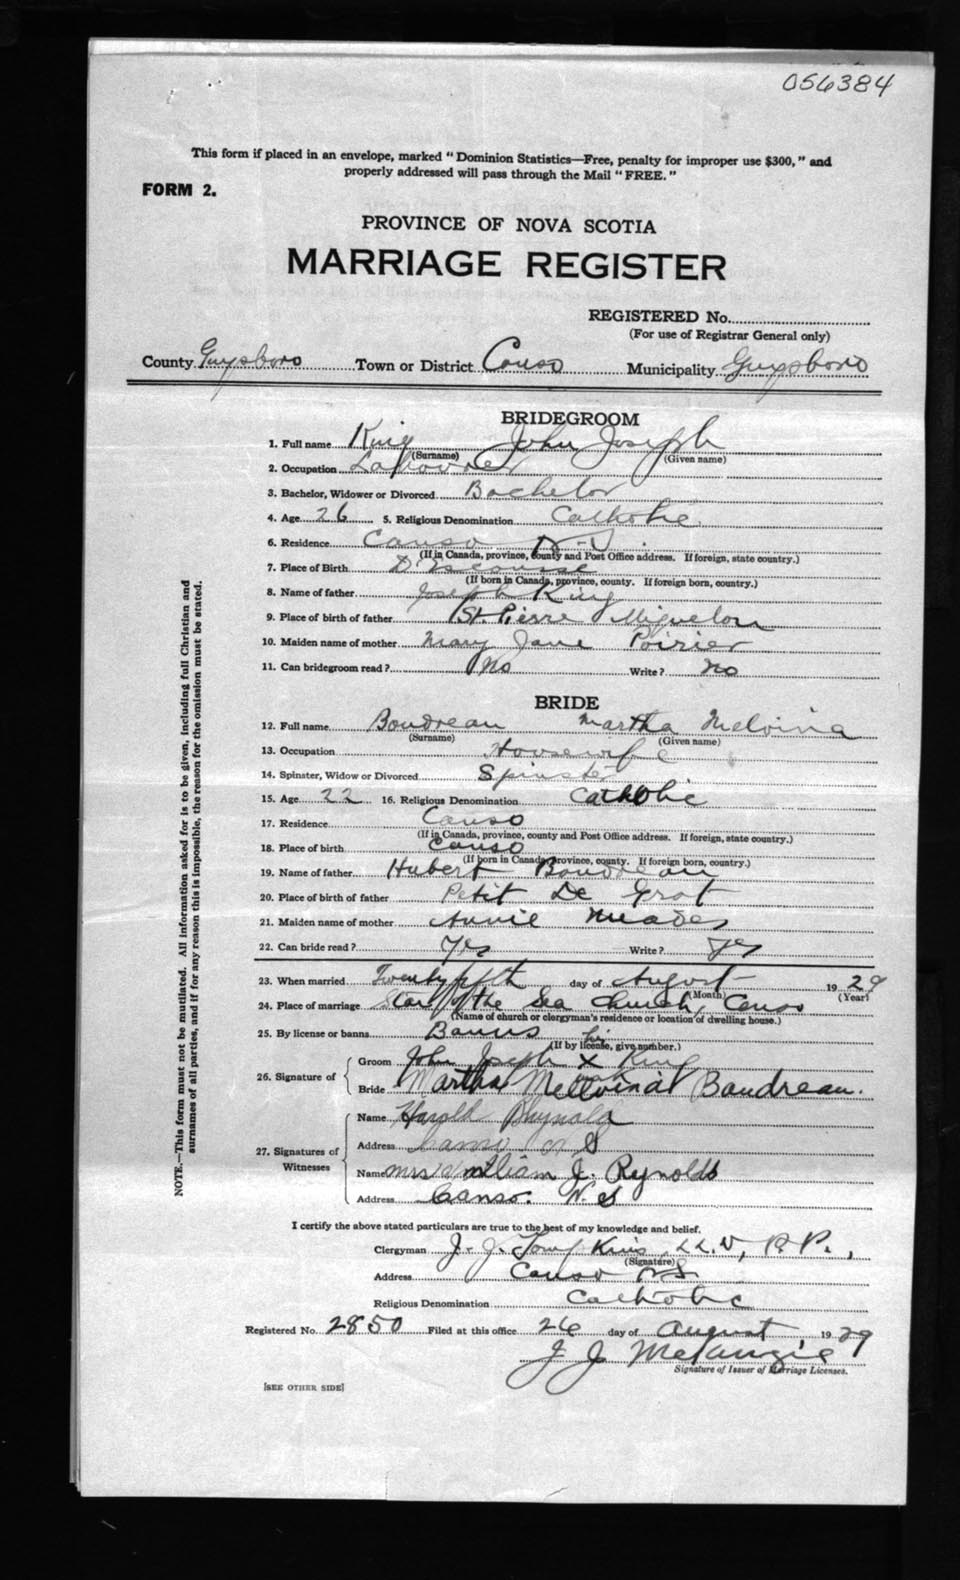 056384
This form if placed in an envelope, marked "Dominion Statistics—Free, penalty for improper use $300," and
properly addressed will pass through the Mail "FREE."
FORM 2.
PROVINCE OF NOVA SCOTIA
MARRIAGE REGISTER
REGISTERED No.
(For use of Registrar General only)
County Guysboro Town or District Canso Municipality Guysboro
BRIDEGROOM
1. Full name King John Joseph
(Surname) (Given name)
2. Occupation Labourer
3. Bachelor, Widower or Divorced Bachelor
4. Age 26 5. Religious Denomination Catholic
6. Residence Canso N-S
(If in Canada, province, county and Post Office address. If foreign, state country.)
7. Place of Birth D'Escousse
(If born in Canada, province, county. If foreign born, country.)
8. Name of father Joseph King
9. Place of birth of father St. Pierre Miquelon
10. Maiden name of mother Mary Jane Poirier
11. Can bridegroom read? No Write? no
BRIDE
12. Full name Boudreau Martha Melvina
(Surname) (Given name)
13. Occupation Housewife
14. Spinster, Widow or Divorced Spinster
15. Age 22 16. Religious Denomination Catholic
17. Residence Canso
(If in Canada, province, county and Post Office address. If foreign, state country.)
18. Place of birth Canso
(If born in Canada, province, county. If foreign born, country.)
19. Name of father Hubert Boudreau
20. Place of birth of father Petit De Grat
21. Maiden name of mother Annie Meades
22. Can bride read? Yes Write? Yes
23. When married Twenty fifth day of August 1929
(Month) (Year)
24. Place of marriage Star of the Sea Church, Canso
(Name of church or clergyman's residence or location of dwelling house.)
25. By license or banns Banns
(If by license, give number.)
his
26. Signature of Groom John Joseph X King
Bride Martha Melvina Boudreau.
27. Signatures of Witnesses
Name Harold
Address Canso N S
Name Mrs William J. Reynolds
Address Canso. N. S
I certify the above stated particulars are true to the best of my knowledge and belief.
Clergyman J. J. P. P.,
(Signature)
Address Canso N.S.
Religious Denomination Catholic
Registered No. 2850 Filed at this office 26 day of August 1929
J J McKenzie
Signature of Issuer of Marriage Licenses.
[SEE OTHER SIDE]
NOTE.—This form must not be mutilated. All information asked for is to be given, including full Christian and
surnames of all parties, and if for any reason this is impossible, the reason for the omission must be stated.